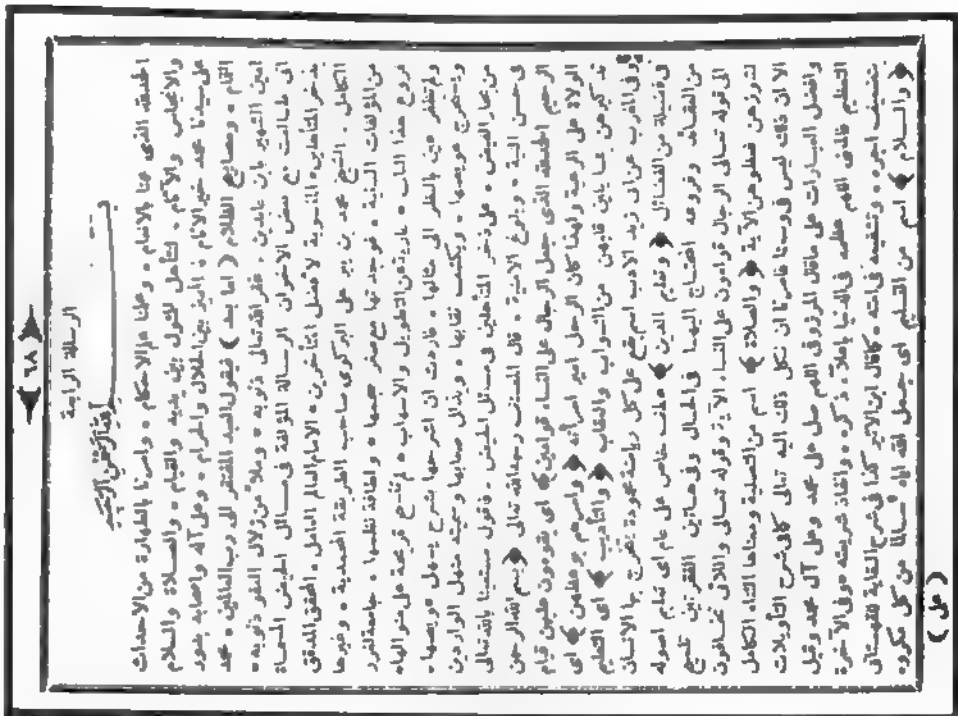 ﴿ ٦٨ ﴾
الرسالة الرابعة
بسم الله الرحمن الرحيم
الحمد لله الذى من علينا بالانعام * وعلمنا الاحكام * وامرنا بالطهارة من الاحداث
والانجاس والآثام * لنتأهل للمثول بين يديه والقيام * والصلاة والسلام
على سيدنا محمد خير الانام * المبين بين الحلال والحرام * وعلى آله واصحابه بدور
التمام * ومصابيح الظلام ( اما بعد ) فيقول العبد المفتقر الى رب العالمين * محمد
امين الشهير بابن عابدين * غفر الله تعالى ذنوبه * وملأ من زلال العفو ذنوبه *
انى طالعت مع بعض الاخوان الرسالة المؤلفة فى مسائل الحيض المسماة
بذخر المتأهلين * المنسوبة لافضل المتأخرين * الامام العالم العامل * المحقق المدقق
الكامل * الشيخ محمد بن بير على البركوى صاحب الطريقة المحمدية * وغيرها
من المؤلفات السنية * فوجدتها مع صغر حجمها * ولطافة نظمها * جامعة لغرر
فروع هذا الباب * عارية عن التطويل والاسهاب * لم تنسج قريحة على منوالها *
ولم تظفر عين بالنظر الى مثالها * فاردت ان اشرحها بشرح يسهل عويصها *
ويستخرج غويصها * ويكشف نقابها * ويذلل صعابها وسميته منهل الواردين
من بحار الفيض * على ذخر المتأهلين فى مسائل الحيض * فاقول مستعينا بالله تعالى
فى حسن النية * وبلوغ الامنية * قال المصنف رحمه الله تعالى ﴿ بسم الله الرحمن
الرحيم الحمد لله الذى جعل الرجال على النساء قوامين ﴾ اى يقومون عليهن قيام
الولاة على الرعية ولهذا كان الرجل امير امرأته ﴿ وامرهم بوعظهن ﴾ اى
تذكيرهن بما يلين قلبهن من الثواب والعقاب ﴿ والتأديب ﴾ اى التعليم
وفى المغرب عن ابى زيد الادب اسم يقع على كل رياضة محمودة يتخرج بها الانسان
فى فضيلة من الفضائل ﴿ وتعليم الدين ﴾ عطف خاص على عام اى تعليم اصوله
من العقائد وفروعه المحتاج اليها فى الحال وفى هاتين الفقرتين تلميح
الى قوله تعالى الرجال قوامون على النساء الآية وقوله تعالى واللاتى تخافون
نشوزهن فعظوهن الآية ﴿ والصلاة ﴾ اسم من التصلية ومعناها الثناء الكامل
الا ان ذلك ليس فى وسعنا فامرنا ان نكل ذلك اليه تعالى كما فى شرح التأويلات
وافضل العبارات على ما قال المرزوقى اللهم صل على محمد وعلى آل محمد وقيل
التعظيم فالمعنى اللهم عظمه فى الدنيا باعلاء ذكره * وانفاذ شريعته * وفى الآخرة
بتضعيف اجره * وتشفيعه فى امته * كما قال ابن الاثير كذا فى شرح النقاية للقهستانى
﴿ والسلام ﴾ اسم من التسليم اى جعل الله اياه سالما من كل مكروه
( على )